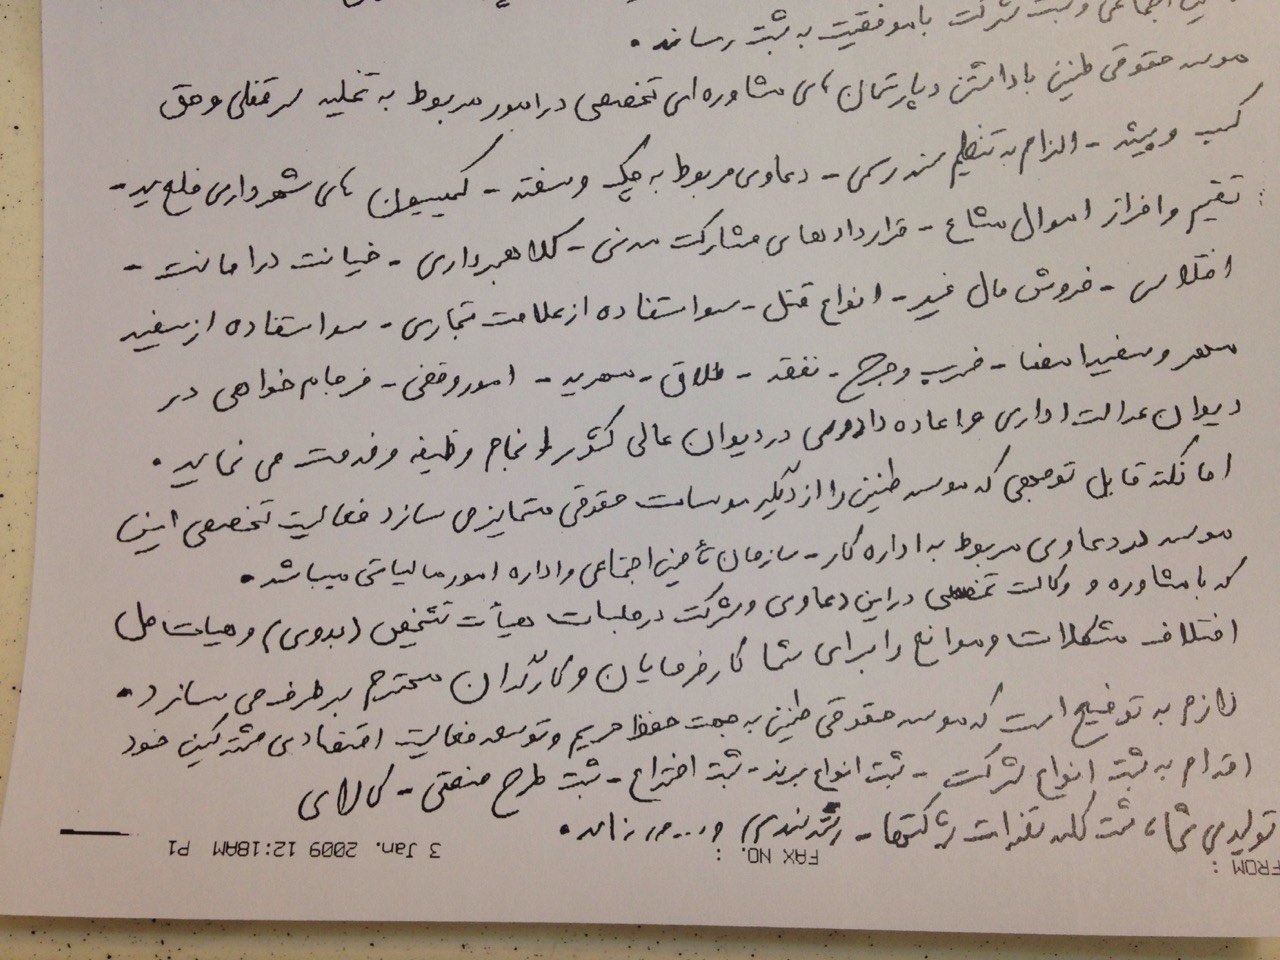 اجتماعی و ثبت شرکت با موفقیت به ثبت رساند.
موسسه حقوقی طنین با داشتن دپارتمان های مشاوره ای تخصصی در امور مربوط به تخلیه سرقفلی و حق
کسب و پیشه - الزام به تنظیم سند رسمی - دعاوی مربوط به چک و سفته - کمیسیون های شهرداری خلع ید -
تقسیم و افراز اموال مشاع - قراردادهای مشارکت مدنی - کلاهبرداری - خیانت در امانت -
اختلاس - فروش مال غیر - انواع قتل - سو استفاده از علامت تجاری - سو استفاده از سفید
مهر و سفید امضا - ضرب و جرح - نفقه - طلاق - مهریه - امور وقفی - فرجام خواهی در
دیوان عدالت اداری و اعاده دادرسی در دیوان عالی کشور انجام وظیفه و خدمت می نماید.
اما نکته قابل توجهی که موسسه طنین را از دیگر موسسات حقوقی متمایز می سازد فعالیت تخصصی این
موسسه در دعاوی مربوط به اداره کار - سازمان تأمین اجتماعی و اداره امور مالیاتی میباشد.
که با مشاوره و وکالت تخصصی در این دعاوی و شرکت در جلسات هیأت تشخیص (بدوی) و هیات حل
اختلاف مشکلات و موانع را برای شما کارفرمایان و کارگران محترم برطرف می سازد.
لازم به توضیح است که موسسه حقوقی طنین به جهت حفظ حریم و توسعه فعالیت اقتصادی مشترکین خود
اقدام به ثبت انواع شرکت - ثبت انواع برند - ثبت اختراع - ثبت طرح صنعتی - کالای
تولیدی شما، ثبت کلیه تغییرات شرکتها - رتبه بندی و... می نماید.
FROM : FAX NO. : 3 Jan. 2009 12:18AM P1